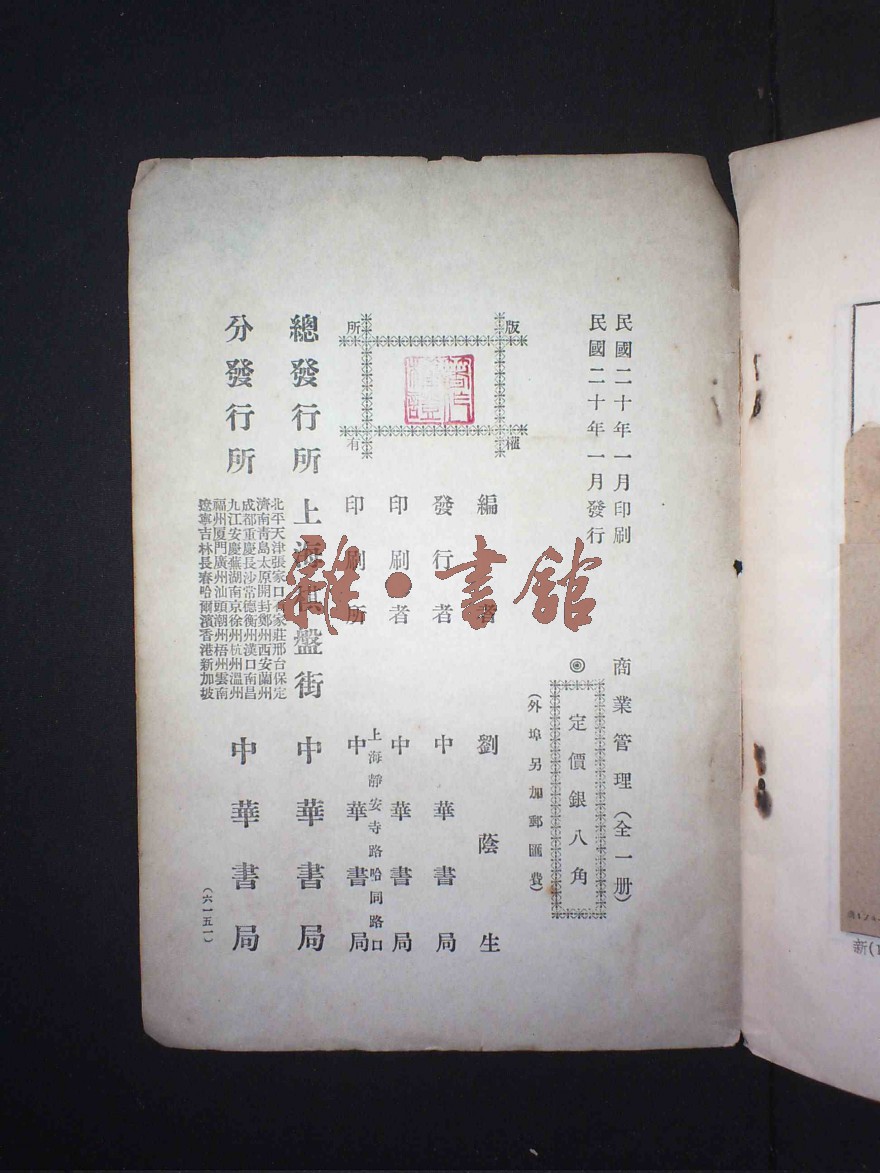 民國二十年一月印刷
民國二十年一月發行
商業管理（全一册）
◎定價銀八角
（外埠另加郵匯費）
版權所有
編者 劉蔭生
發行者 中華書局
印刷者 中華書局
上海靜安寺路哈同路口
印刷所 中華書局
總發行所 上海棋盤街 中華書局
分發行所
北平天津張家口石家莊邢台保定
濟南青島太原開封鄭州西安蘭州
成都重慶長沙常德衡州漢口南昌
九江安慶蕪湖南京徐州杭州溫州
福州厦門廣州汕頭潮州梧州雲南
遼寧吉林長春哈爾濱香港新加坡
中華書局
（六一五一）
雜·書館
新(1